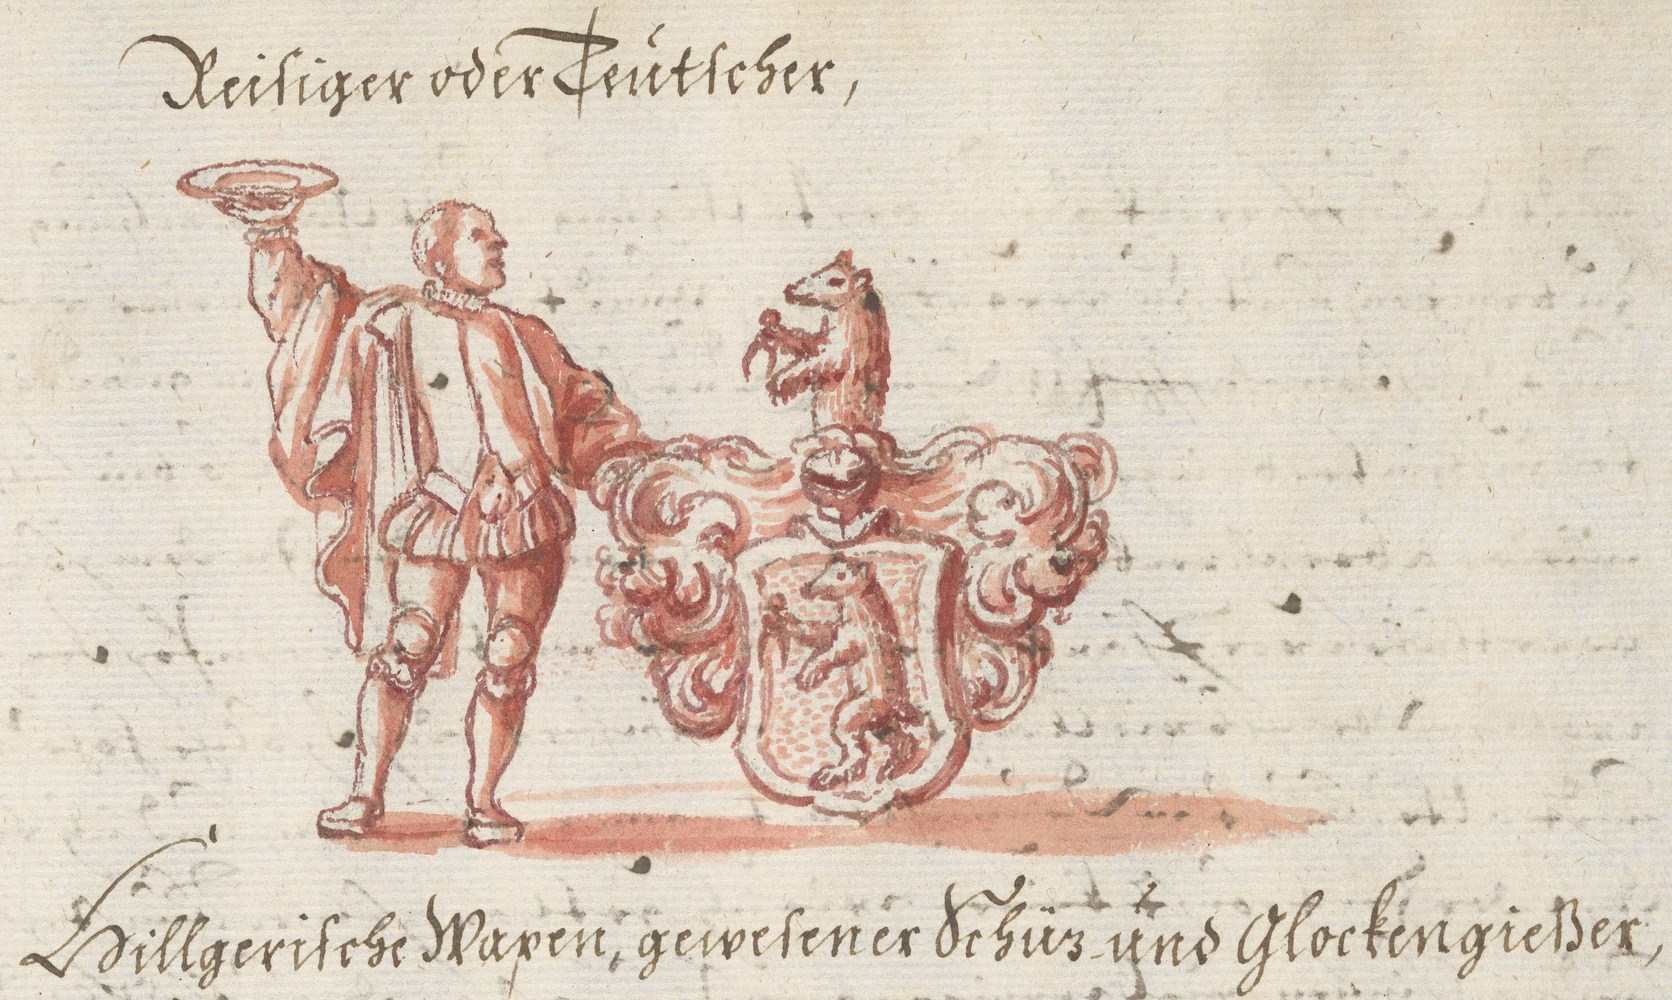 Reisiger oder Teütscher,
Hillgerische Wapen, gewesener Schüz und Glockengießer,